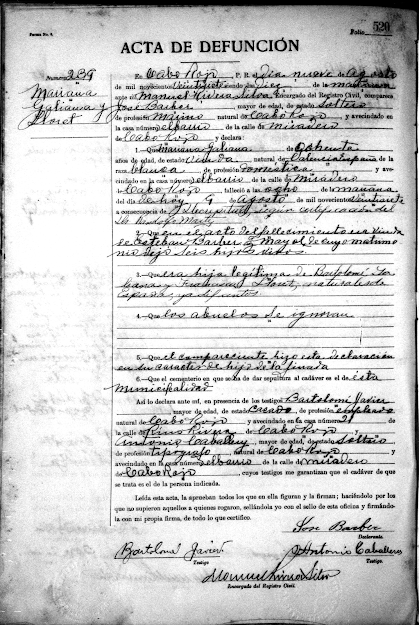 Forma No. 4.
Folio 520
ACTA DE DEFUNCIÓN
Número 239
Mariana
Galiana y
Lloret
En Cabo Rojo P. R. el día nueve de Agosto
de mil novecientos veintisiete siendo diez de la mañana
ante mí Manuel Rivera Silva, Encargado del Registro Civil, comparece
José Barber mayor de edad, de estado soltero
de profesión Marino natural de Cabo Rojo y avecindado en
la casa número el barrio de la calle de Miradero
de Cabo Rojo y declara:
1. Que Mariana Galiana de Ochenta
años de edad, de estado viuda natural de Valencia España de la
raza blanca de profesión Doméstica y
avecindado en la casa el barrio la calle de Miradero
de Cabo Rojo falleció a las ocho de la mañana
del día de hoy 9 de Agosto de mil novecientos veintisiete
a consecuencia de según certificación del
2.—Que en el acto del fallecimiento era viuda
de Esteban Barber y Mayol de cuyo matrimo
nio dejó seis hijos vivos.
3.—Que era hija legítima de Bartolomé Ga
liana y Francisca Lloret, naturales de
España, ya difuntos
4.—Que los abuelos se ignoran
5.—Que el compareciente hizo esta declaración
en su caracter de hijo de la finada
6.—Que el cementerio en que se ha de dar sepultura al cadáver es el de esta
Municipalidad
Así lo declara ante mí, en presencia de los testigos Bartolomé Javier
, mayor de edad, de estado Casado, de profesión empleado
natural de Cabo Rojo y avecindado en la casa número 21
de la calle de Ruiz Rivera de Cabo Rojo y
Antonio Caballery, mayor de edad, de estado Soltero
de profesión tipógrafo natural de Cabo Rojo y
avecindado en la casa número el barrio de la calle de Miradero
de Cabo Rojo, cuyos testigos me garantizan que el cadáver de
que se trata es el de la persona indicada.
Leída esta acta, la aprueban todos los que en ella figuran y la firman; haciéndolo por los
que no supieren aquellos a quienes rogaren, sellándola yo con el sello de esta oficina y firmándo-
la con mi propia firma, de todo lo que certifico.
José Barber
Declarante.
Bartolomé Javier
Testigo
Antonio Caballery
Testigo.
Manuel Rivera Silva
Encargado del Registro Civil.